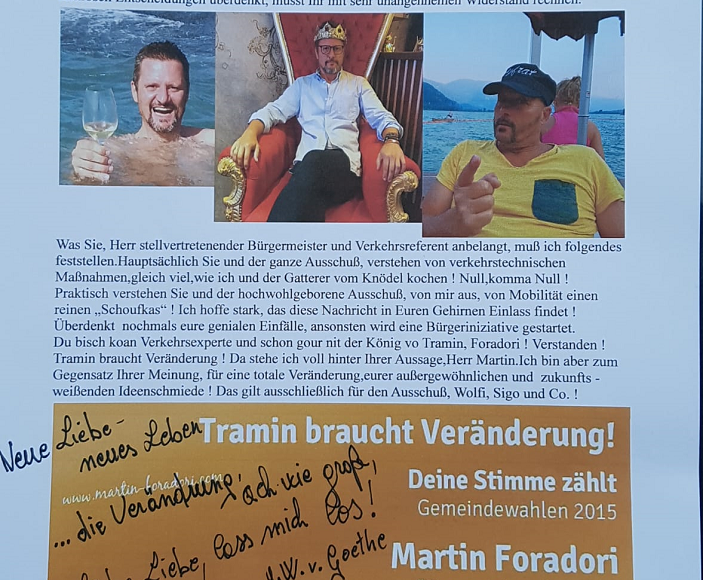 Entscheidungen überdenkt, müsst Ihr mit sehr unangenehmen Widerstand rechnen.
Was Sie, Herr stellvertretenender Bürgermeister und Verkehrsreferent anbelangt, muß ich folgendes
feststellen.Hauptsächlich Sie und der ganze Ausschuß, verstehen von verkehrstechnischen
Maßnahmen,gleich viel,wie ich und der Gatterer vom Knödel kochen ! Null,komma Null !
Praktisch verstehen Sie und der hochwohlgeborene Ausschuß, von mir aus, von Mobilität einen
reinen „Schoufkas“ ! Ich hoffe stark, das diese Nachricht in Euren Gehirnen Einlass findet !
Überdenkt nochmals eure genialen Einfälle, ansonsten wird eine Bürgeriniziative gestartet.
Du bisch koan Verkehrsexperte und schon gour nit der König vo Tramin, Foradori ! Verstanden !
Tramin braucht Veränderung ! Da stehe ich voll hinter Ihrer Aussage,Herr Martin.Ich bin aber zum
Gegensatz Ihrer Meinung, für eine totale Veränderung,eurer außergewöhnlichen und zukunfts -
weißenden Ideenschmiede ! Das gilt ausschließlich für den Ausschuß, Wolfi, Sigo und Co. !
Neue Liebe -
neues Leben
Tramin braucht Veränderung!
www.martin-foradori.com
Deine Stimme zählt
... die Verändrung, ach wie groß,
Gemeindewahlen 2015
Liebe, lass mich los!
W. v. Goethe
Martin Foradori